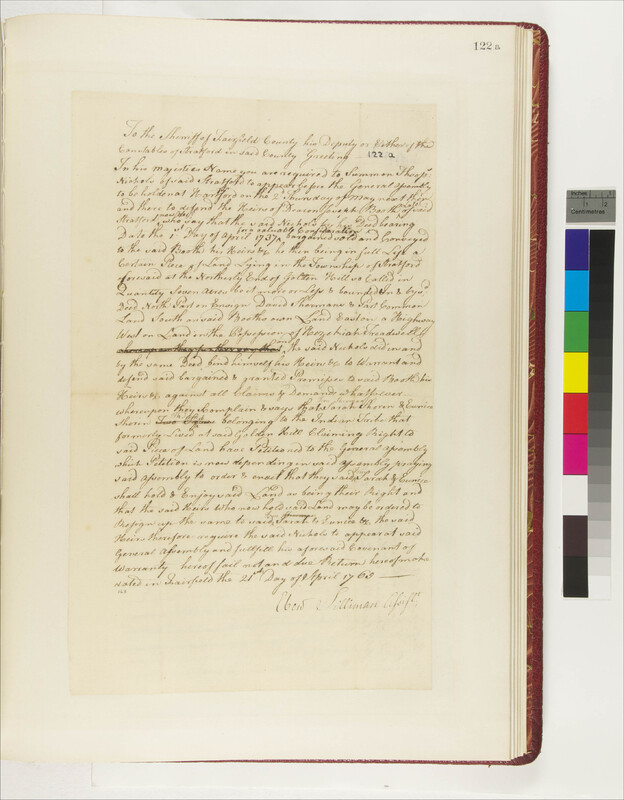 122a
To the Sheriff of Fairfield County his Deputy or Either of the
Constables of Stratford in said County Greeting
122 a
In his majesties Name you are required to Summon Theop.
Nichols of said Stratford to appear before the General Assembly
to be holden at Hartford on the 2d Thursday of May next then
and there to defend the Heirs of Deacon Joseph Booth of said
Stratford who say that the said Nichols by his Deed bearing
Date the 1st Day of April 1737 for a valuable Consideration bargained sold and Conveyed
to the said Booth his Heirs &c he then being in full Life a
Certain Piece of Land Lying in the Township of Stratford
aforesaid at the Northerly End of Golden Hill so Called in
Quantity Seven Acres be it more or Less & bounded in & by sd
Deed North Part on Ensign David Shermans & Part Common
Land South on said Booths own Land East on a Highway
West on Land in the Possession of Hezekiah Treadwell
the said Nichols did in and
by the same Deed bind himself his Heirs &c to Warrant and
defend said bargained & granted Premises to said Booth his
Heirs &c against all Claims & Demands whatsoever
whereupon they Complain & say that Sarah Shoran & Eunice
Shoran belonging to the Indian Tribe that
formerly Lived at said Golden Hill Claiming Right to
said Piece of Land have Petitioned to the General Assembly
which Petition is now depending in said Assembly praying
said Assembly to order & enact that they said Sarah & Eunice
shall hold & Enjoy said Land as being their Right and
that the said Heirs who now hold said Land may be ordered to
Resign up the same to said Sarah & Eunice &c. the said
Heirs therefore require the said Nichols to appear at said
General Assembly and fullfill his aforesaid Covenant of
Warranty hereof fail not and due Return hereof make
dated in Fairfield the 21st Day of April 1763
Ebenr Silliman Assist.
Inches
1
2
Centimetres